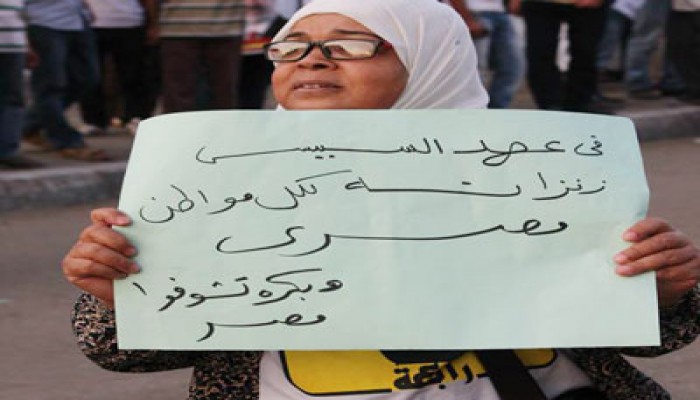 فى عهد السيسى
زنزانة لكل مواطن
مصرى
وبكره تشوفوا
مصر
رابعة